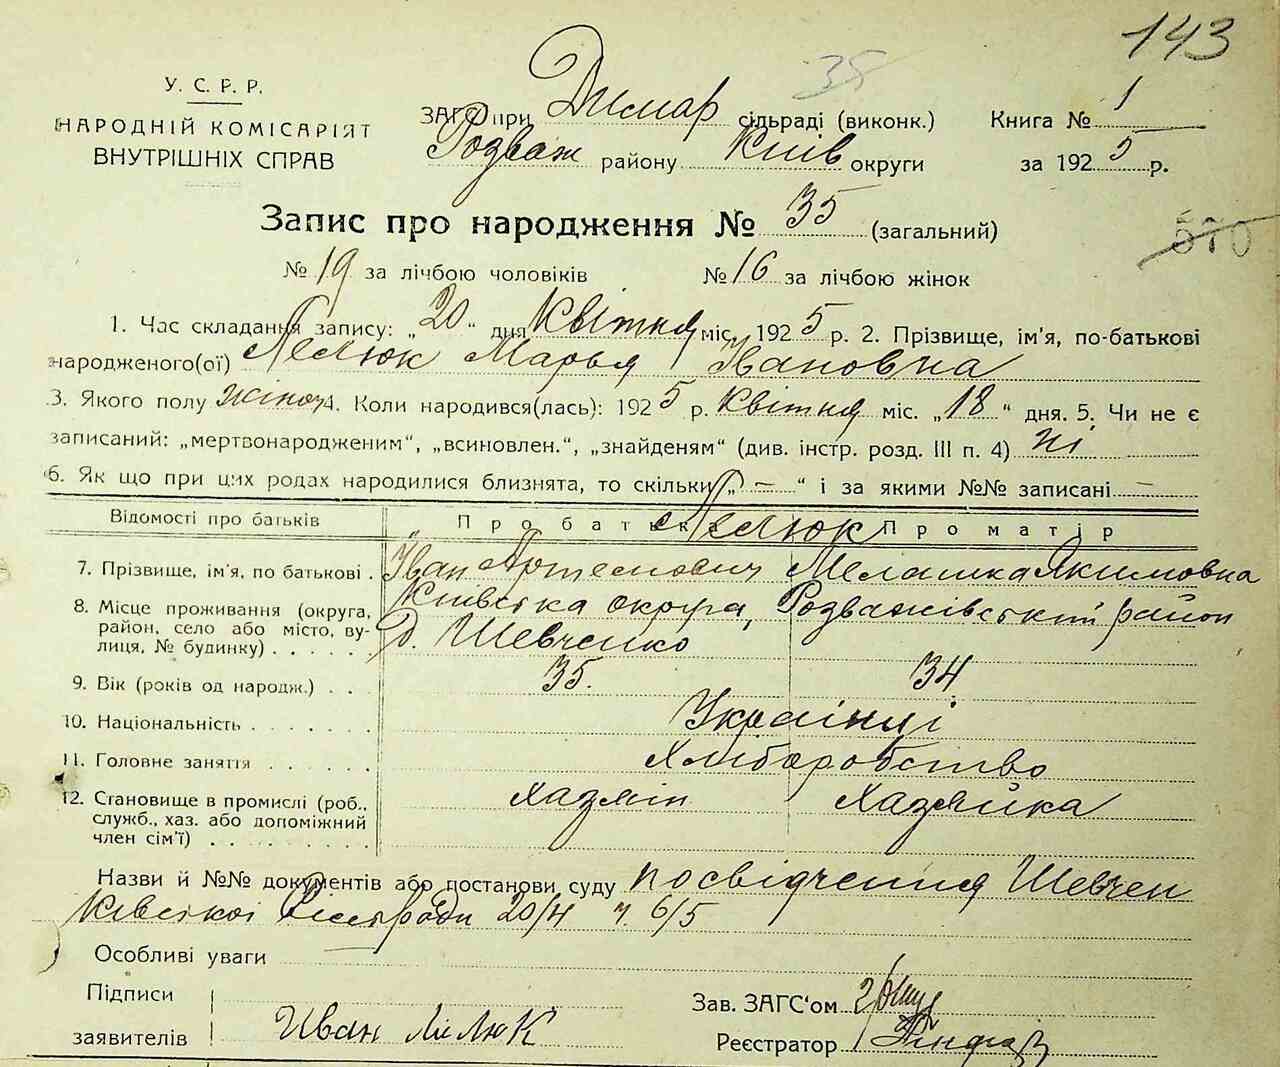 143
35
У. С. Р. Р.
НАРОДНІЙ КОМІСАРІЯТ
ВНУТРІШНІХ СПРАВ
ЗАГС при Димар сільраді (виконк.) Книга № 1
Розваж району Київ округи за 1925 р.
Запис про народження № 35 (загальний)
570
№ 19 за лічбою чоловіків № 16 за лічбою жінок
1. Час складання запису: „20“ дня Квітня міс. 1925 р. 2. Прізвище, ім'я, по-батькові
народженого(ої) Лелюк Марья Івановна
3. Якого полу жіноч 4. Коли народився(лась): 1925 р. Квітня міс. „18“ дня. 5. Чи не є
записаний: „мертвонародженим“, „всиновлен.“, „знайденям“ (див. інстр. розд. III п. 4) ні
6. Як що при цих родах народилися близнята, то скільки „—“ і за якими №№ записані —
Відомості про батьків Про батька Про матір
Лелюк
7. Прізвище, ім'я, по батькові . Іван Артемович Мелашка Якимовна
8. Місце проживання (округа, район, село або місто, вулиця, № будинку) . . . . . Київська округа, Розважівський район
д. Шевченко
9. Вік (років од народж.) . . 35. 34
10. Національність . . . . . . . Українці
11. Головне заняття . . . . . . Хліборобство
12. Становище в промислі (роб., служб., хаз. або допоміжний член сім'ї) . . . . . . . . . Хазяін Хазяйка
Назви й №№ документів або постанови суду посвідчення Шевчен
ківської Сільради 20/4 ч. 6/5
Особливі уваги
Підписи
заявителів Иван Лилюк
Зав. ЗАГС‘ом
Реєстратор